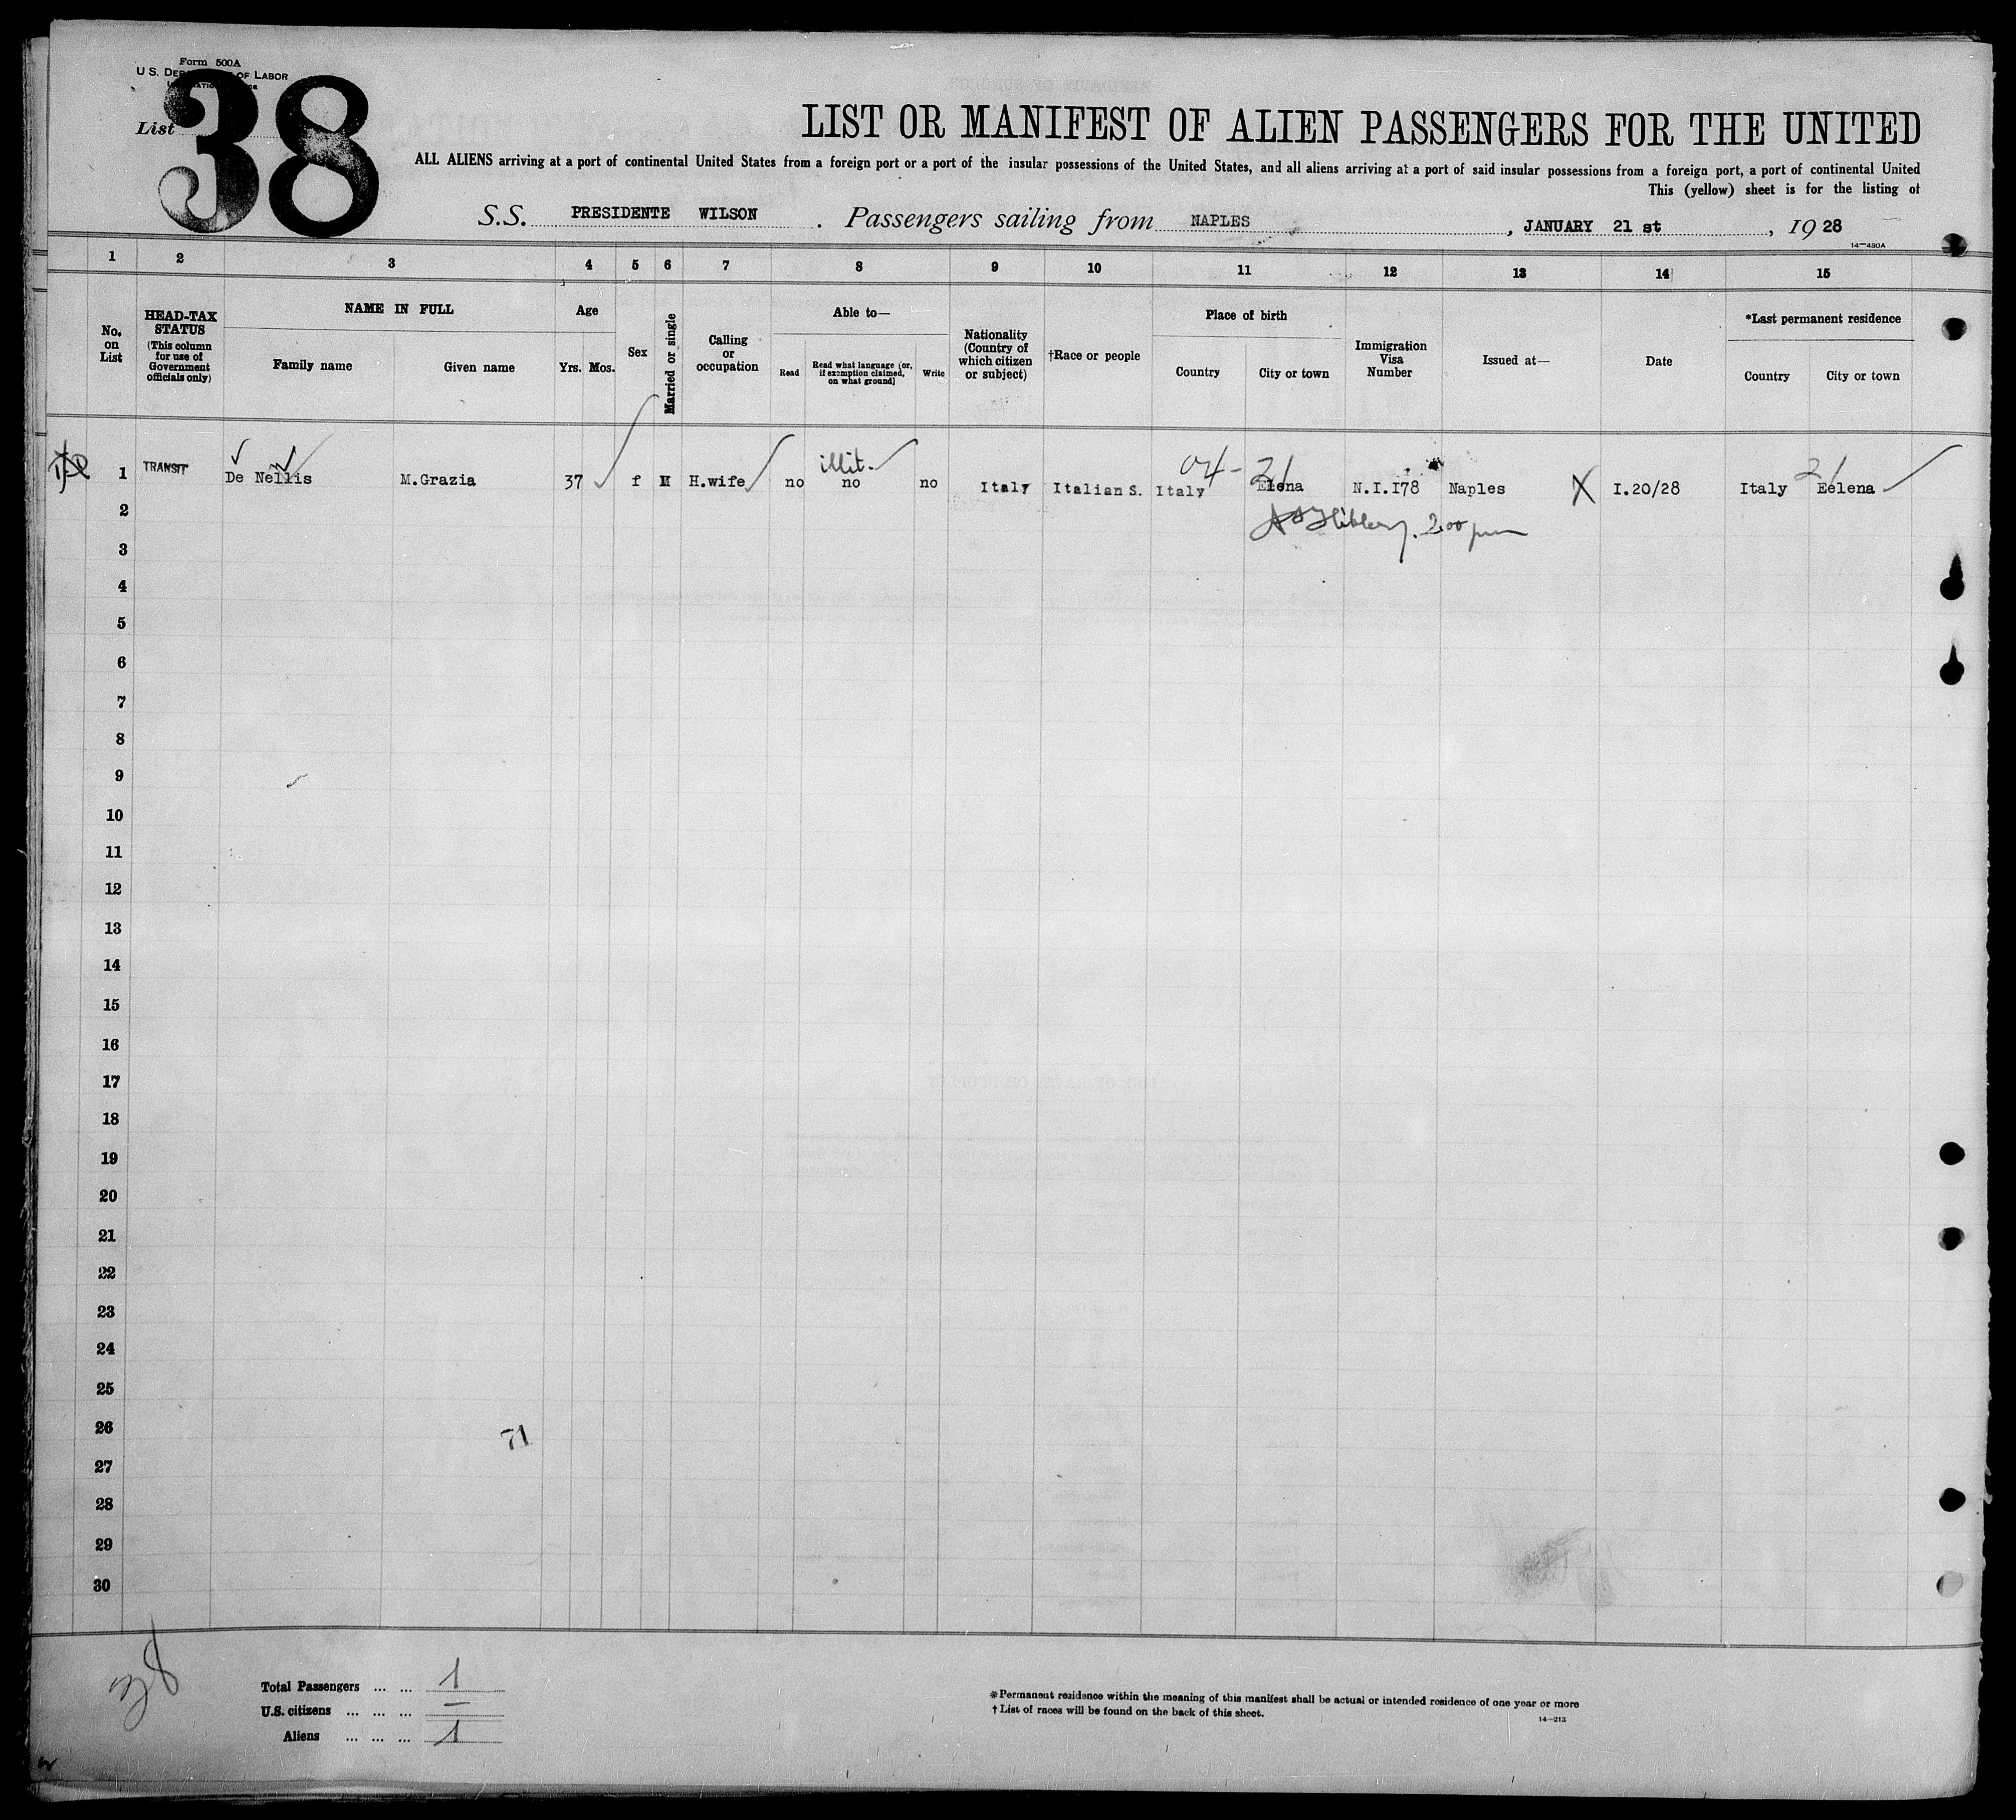 Form 500A
U S. DEP OF LABOR
38
List
LIST OR MANIFEST OF ALIEN PASSENGERS FOR THE UNITED
ALL ALIENS arriving at a port of continental United States from a foreign port or a port of the insular possessions of the United States, and all aliens arriving at a port of said insular possessions from a foreign port, a port of continental United
This (yellow) sheet is for the listing of
S.S. PRESIDENTE WILSON . Passengers sailing from NAPLES , JANUARY 21 st , 19 28
14—430A
1 2 3 4 5 6 7 8 9 10 11 12 13 14 15
No. on List
HEAD-TAX STATUS (This column for use of Government officials only)
NAME IN FULL
Family name Given name
Age
Yrs. Mos.
Sex
Married or single
Calling or occupation
Able to—
Read Read what language (or, if exemption claimed, on what ground) Write
Nationality (Country of which citizen or subject)
†Race or people
Place of birth
Country City or town
Immigration Visa Number
Issued at—
Date
*Last permanent residence
Country City or town
illit. 04- 21 21
1 TRANSIT De Nellis M.Grazia 37 f M H.wife no no no Italy Italian S. Italy Elena N.I.178 Naples X I.20/28 Italy Eelena
2 2.00 pm
3
4
5
6
7
8
9
10
11
12
13
14
15
16
17
18
19
20
21
22
23
24
25
26
71
27
28
29
30
38
Total Passengers ... ... 1
U.S. citizens ... ... ... —
Aliens ... ... ... 1
*Permanent residence within the meaning of this manifest shall be actual or intended residence of one year or more
† List of races will be found on the back of this sheet.
14—213